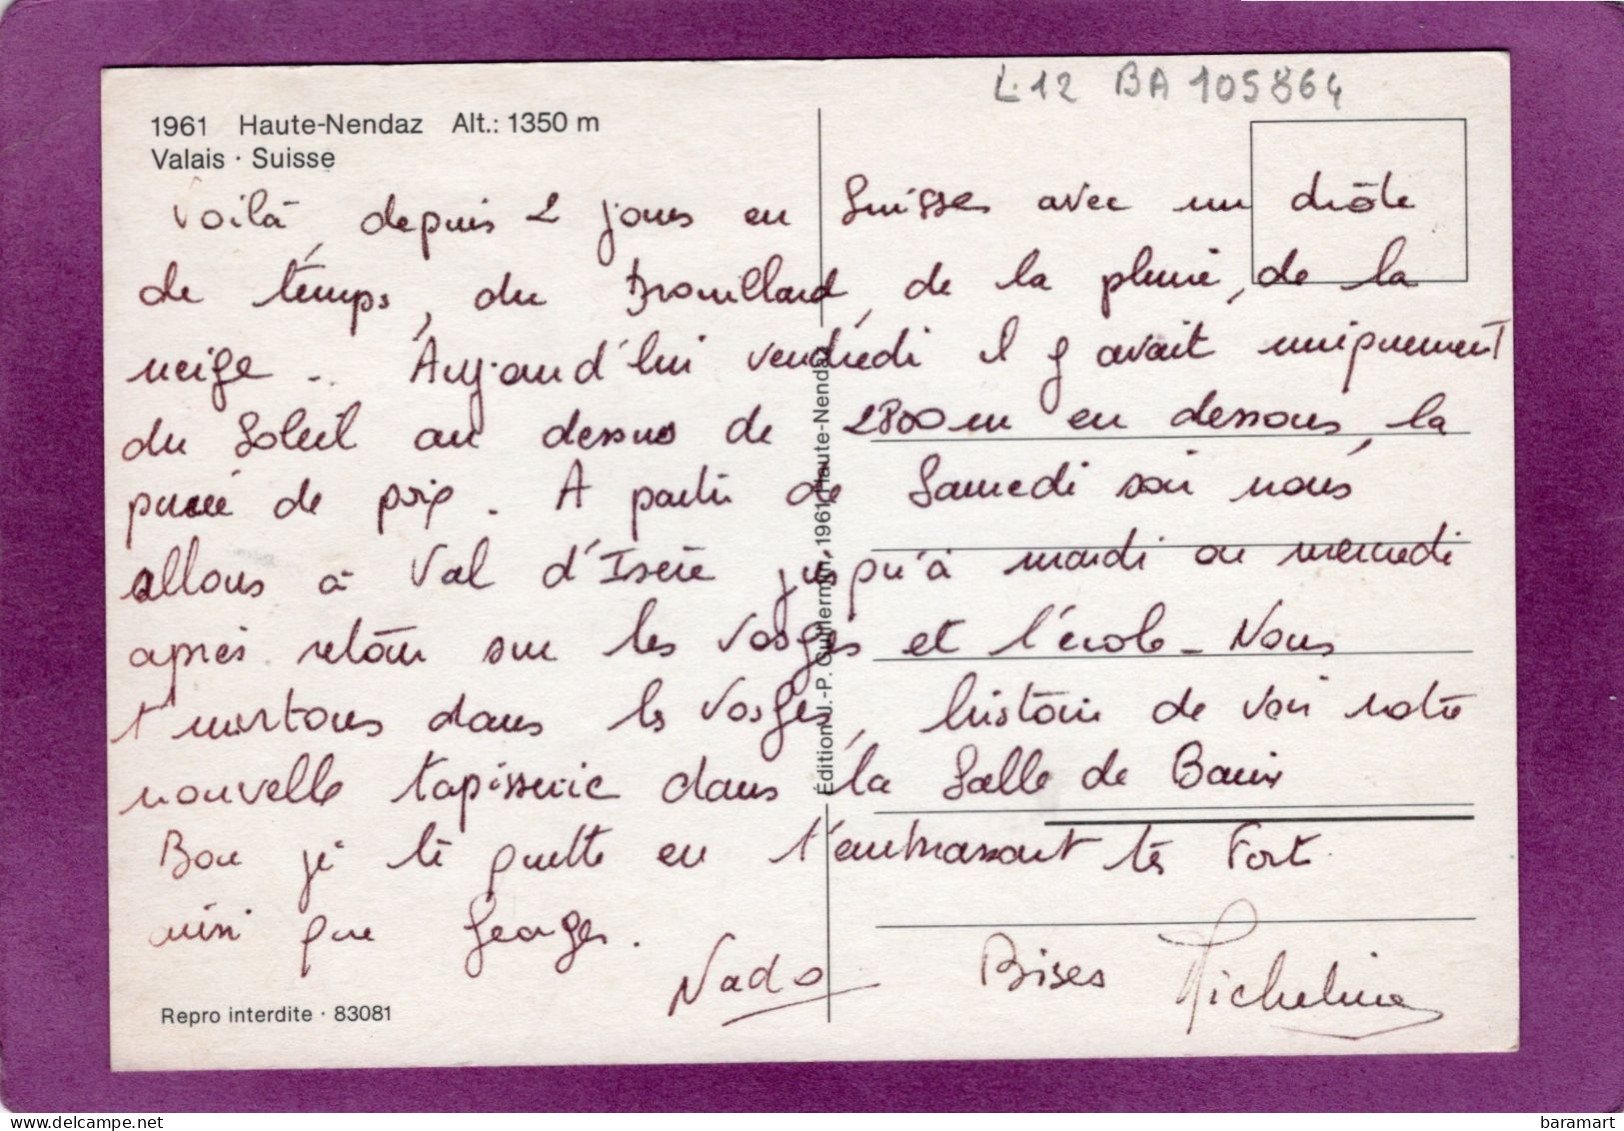 L.12 BA 105864
1961 Haute-Nendaz Alt.: 1350 m
Valais · Suisse
Voilà, depuis 2 jours en Suisse avec un drôle
de temps, du Brouillard, de la pluie, de la
neige... Aujourd'hui vendredi il y avait uniquement
du Soleil au dessus de 2800 m en dessous, la
purée de poix. A partir de Samedi soir nous
allons à Val d'Isère jusqu'à mardi ou mercredi
après retour sur les Vosges et l'école - Nous
t'invitons dans les Vosges, histoire de voir notre
nouvelle tapisserie dans la Salle de Bains
Bon je te quitte en t'embrassant très Fort
ainsi que Georges.
Nado Bises Micheline
Repro interdite · 83081
Édition J.-P. Guillermin, 1961 Haute-Nendaz
baramart